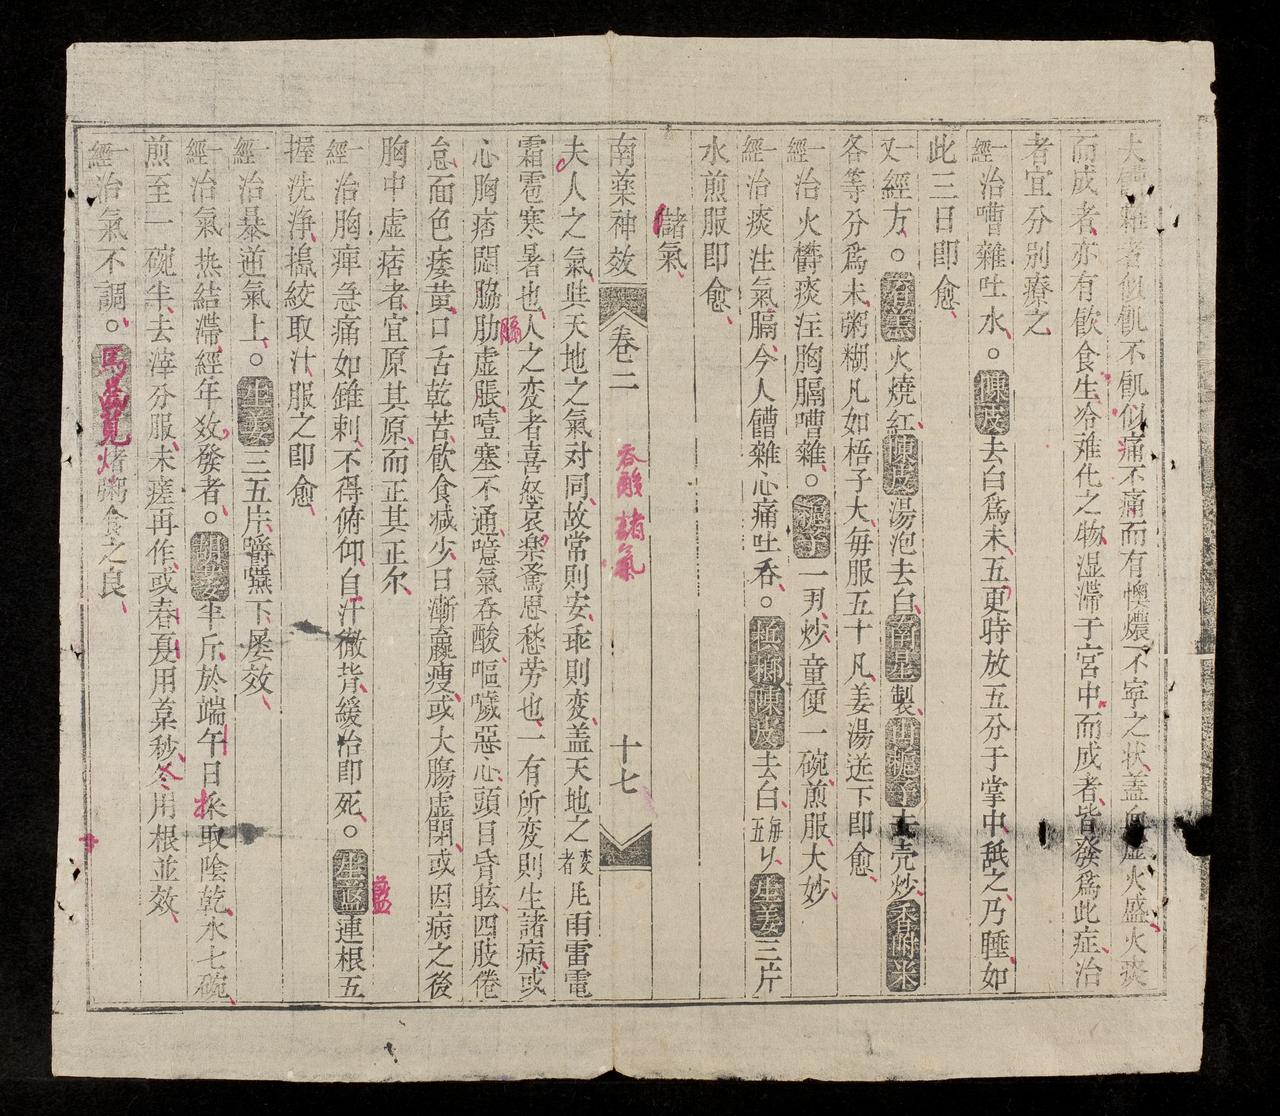 夫饋雜者似飢不飢似痛不痛而有懊憹不寧之状盖血虚火盛火痰
而成者亦有飮食生冷难化之物湿滞于宮中而成者皆發爲此症治
者宜分別療之
一經治嘈雜吐水○陳皮去白爲末五更時放五分于掌中舐之乃睡如
此三日即愈
又一經方○石羔火燒紅陳皮湯泡去白南星製山梔子去壳炒香附米
各等分爲末粥糊凡如梧子大每服五十凡姜湯送下即愈
一經治火欝痰注胸膈嘈雜○梔子一列炒童便一碗煎服大妙
一經治痰注氣膈今人饋雜心痛吐呑○梹榔陳皮去白每五以生姜三片
水煎服即愈
諸氣
南薬神效 卷二 呑酸 諸氣 十七
夫人之氣與天地之氣对同故常則安乖則变盖天地之变者凡雨雷電
霜雹寒暑也人之变者喜怒哀楽驚恩愁劳也一有所变則生諸病或
心胸痞悶脇肋膈虚脹噎塞不通噫氣呑酸嘔噦惡心頭目昏眩四肢倦
怠面色痿黄口舌乾苦飮食减少日漸羸瘦或大腸虚閉或因病之後
胸中虚痞者宜原其原而正其正尔
一經治胸痺急痛如錐刺不得俯仰自汗徹背緩治即死○生藍藍連根五
握洗净搗絞取汁服之即愈
一經治暴逆氣上○生姜三五片嚼嚥下屡效
一經治氣热結滞經年效發者○胡荽半斤於端午日採取陰乾水七碗
煎至一碗半去滓分服未瘥再作或春夏用葉秒冬用根並效
一經治氣不調○馬莧煮粥食之良